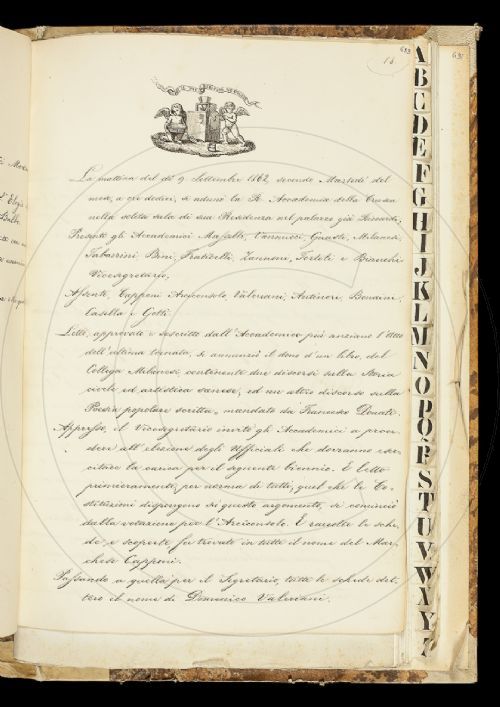 683
15
La mattina del dì 9 Settembre 1862, secondo Martedì del
mese, a ore dodici, si adunò la R. Accademia della Crusca
nella solita sala di sua Residenza nel palazzo già Riccardi,
Presenti gli Accademici Vannucci, Guasti, Milanesi,
Tabarrini, Bini, Fraticelli, Zannoni, Tortoli e Bianchi
Vicesegretario;
Assenti, Capponi Arciconsolo, Valeriani, Antinori, Bondini,
Casella e Gotti.
Letto, approvato e soscritto dall'Accademico più anziano l'Atto
dell'ultima tornata, si annunziò il dono d'un libro, del
Collega Milanesi, contenente due discorsi sulla Storia
civile ed artistica sanese, ed un altro discorso sulla
Poesia popolare scritta, mandato da Francesco Donati.
Appresso, il Vicesegretario invitò gli Accademici a proce-
dere all'elezione degli Uffiziali che dovranno eser-
citare la carica per il seguente biennio. E letto
primieramente, per norma di tutti, quel che le Co-
stituzioni dispongono su questo argomento, si cominciò
dalla votazione per l'Arciconsolo. E raccolte le sche-
de e scoperte fu trovato in tutte il nome del Mar-
chese Capponi.
Passando a quella per il Segretario, tutte le schede det-
tero il nome di Domenico Valeriani.
A
B
C
D
E
F
G
H
I
J
K
L
M
N
O
P
Q
R
S
T
U
V
W
X
Y
Z